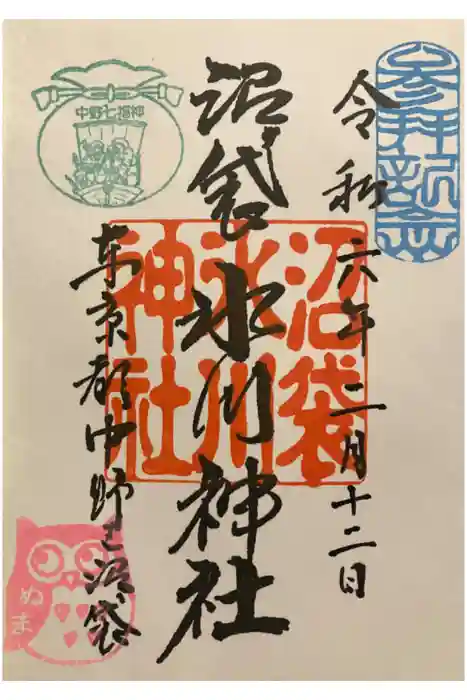 参拝記念
令和六年二月十二日
沼袋氷川神社
沼袋
氷川
神社
中野七福神
東京都中野区沼袋
ぬま